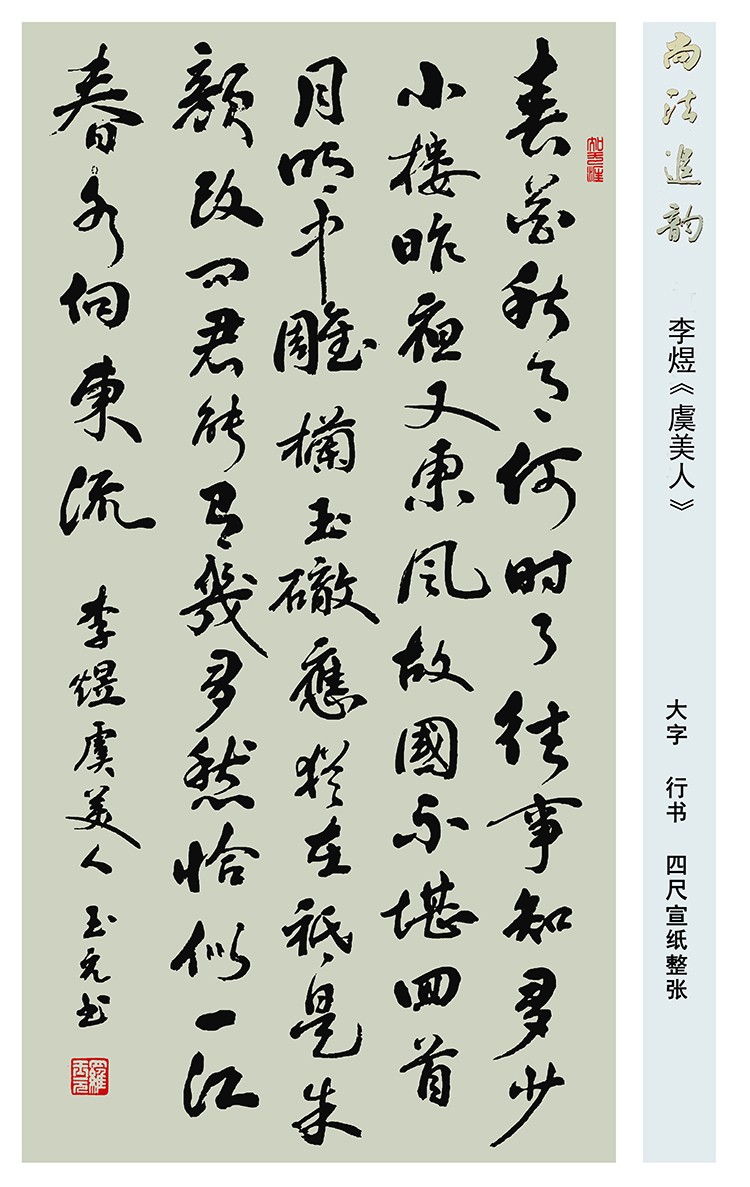 尚法追韵
李煜《虞美人》
大字 行书 四尺宣纸整张
春花秋月何时了往事知多少
小樓昨夜又東風故國不堪回首
月明中雕欄玉砌應猶在祇是朱
顏改問君能有幾多愁恰似一江
春水向東流 李煜虞美人 玉元书